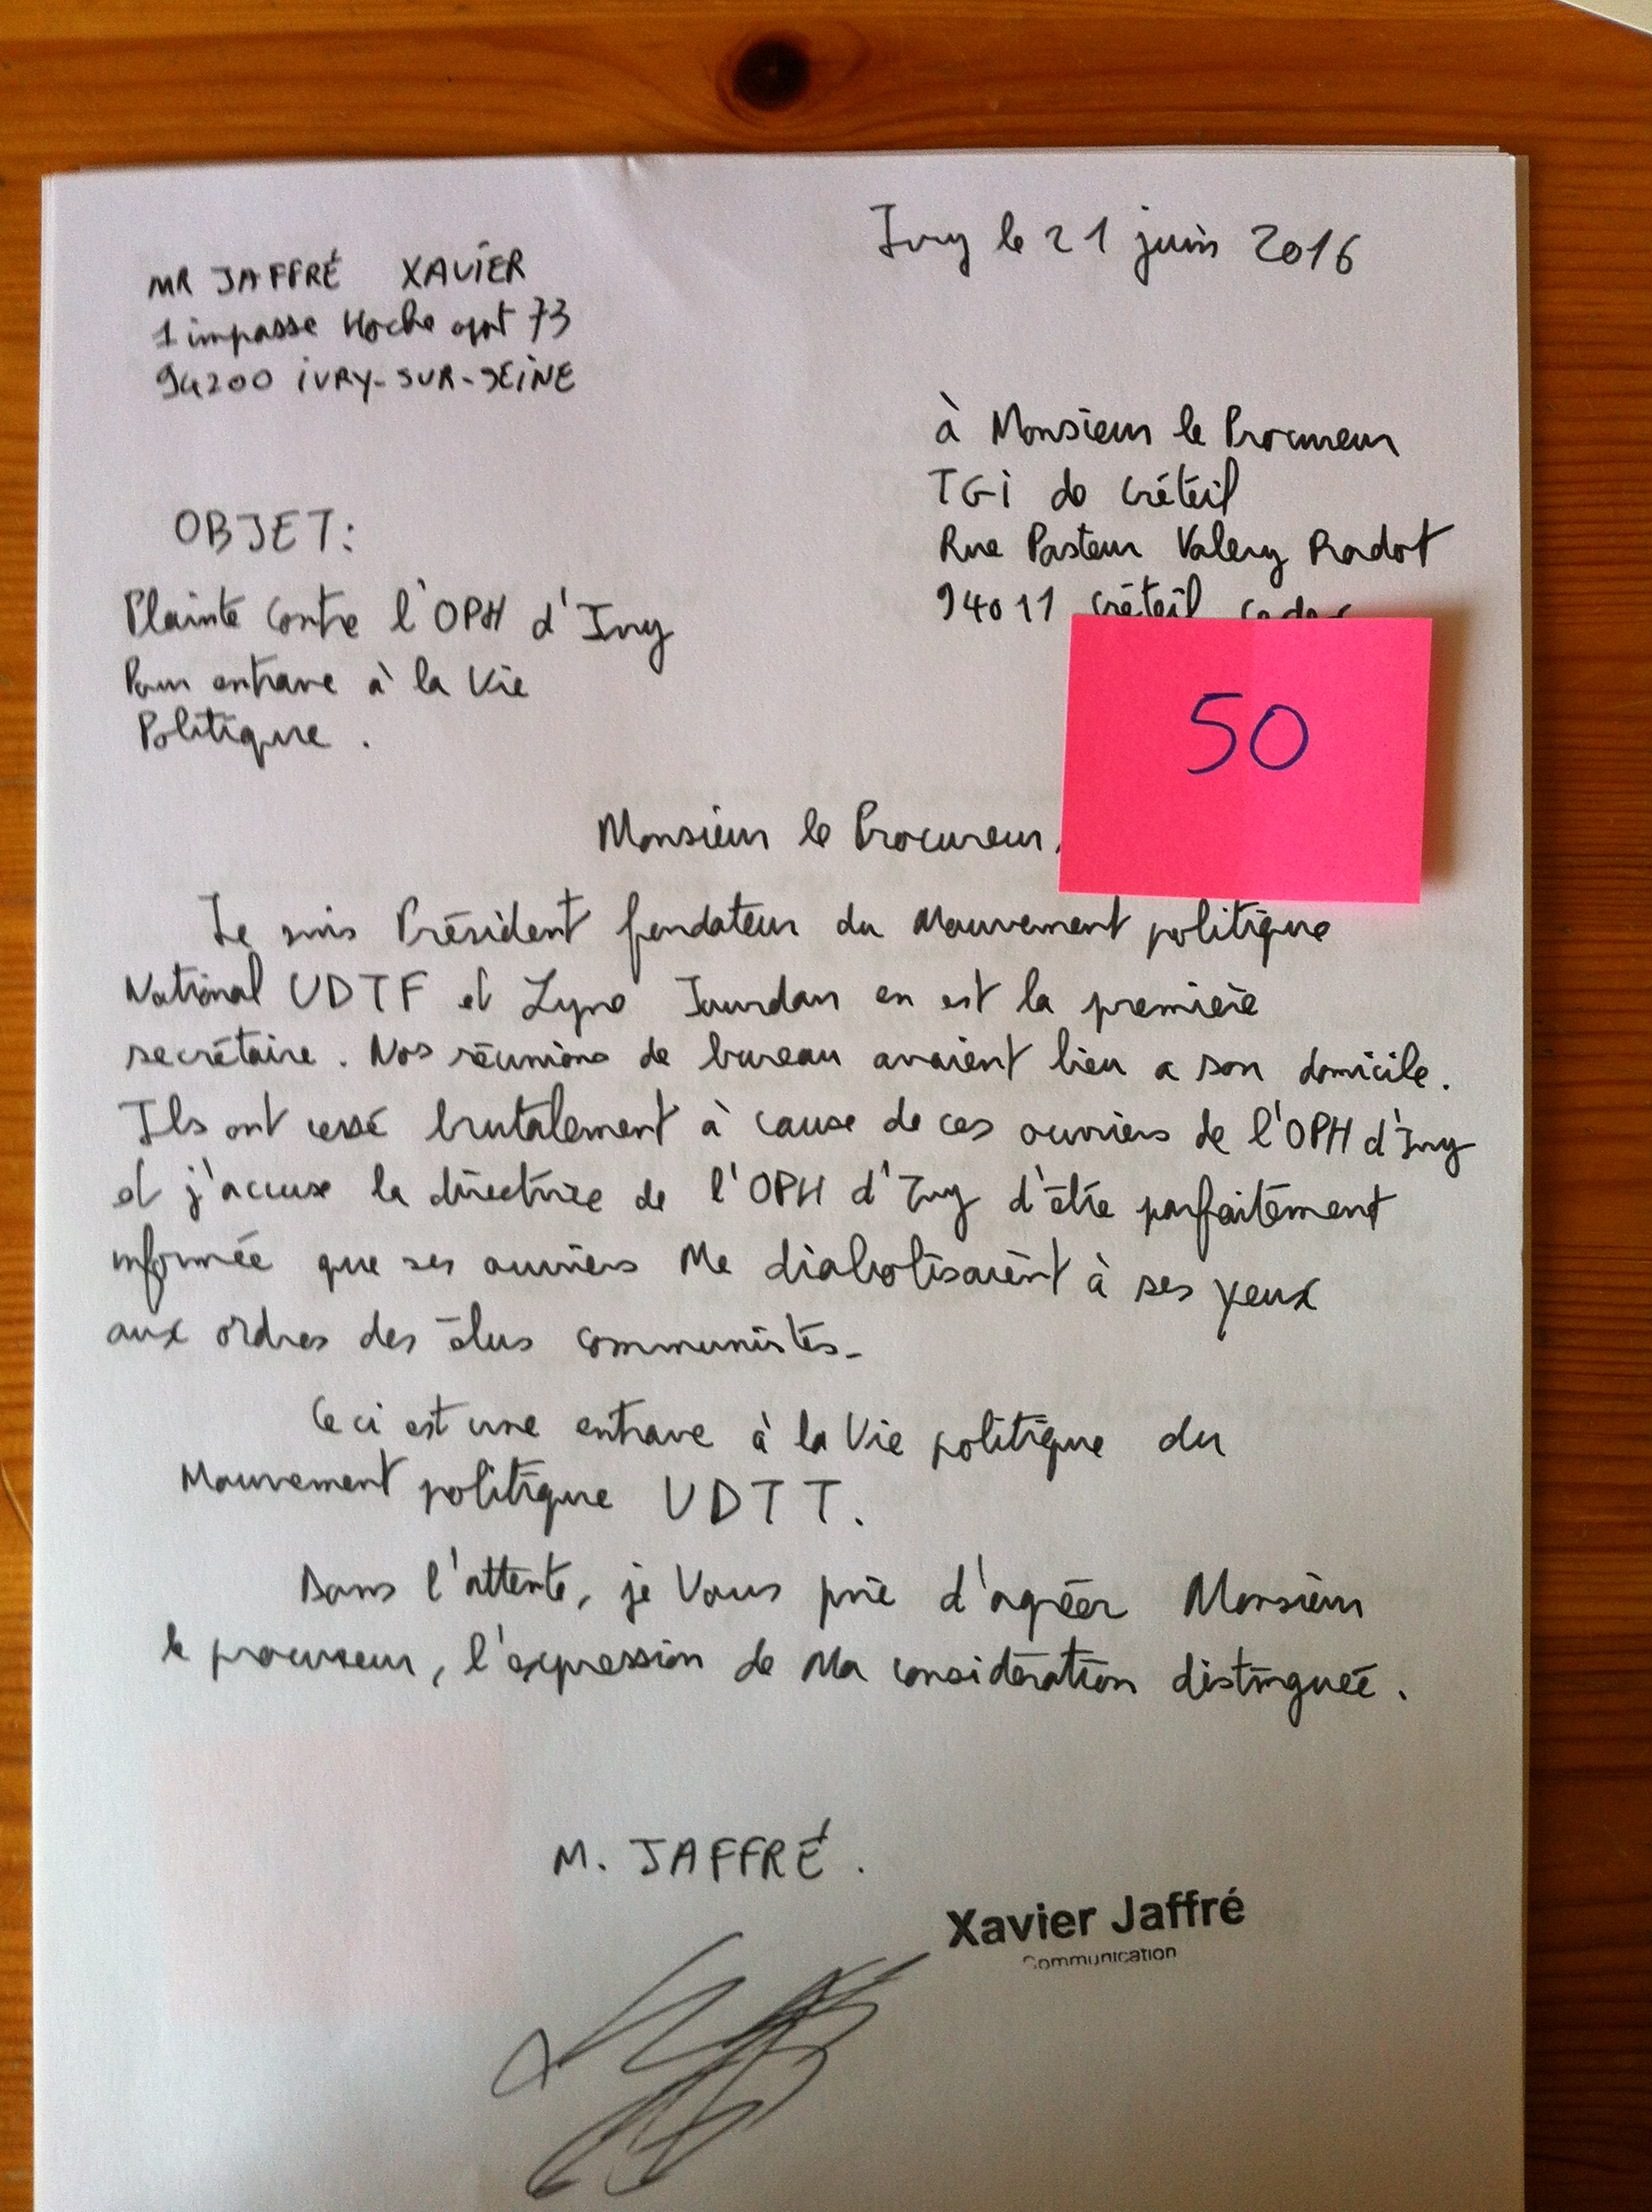 Ivry le 21 juin 2016
MR JAFFRÉ XAVIER
1 impasse Hoche apt 73
94200 IVRY-SUR-SEINE
à Monsieur le Procureur
TGI de Créteil
Rue Pasteur Valery Radot
94011 Créteil Cedex
OBJET:
Plainte contre l'OPH d'Ivry
Pour entrave à la Vie
Politique.
50
Monsieur le Procureur,
Je suis Président fondateur du Mouvement politique
National UDTF et Lyne Jourdan en est la première
secrétaire. Nos réunions de bureau avaient lieu a son domicile.
Ils ont cessé brutalement à cause de ces ouvriers de l'OPH d'Ivry
et j'accuse la directrice de l'OPH d'Ivry d'être parfaitement
informée que ses ouvriers Me diabolisaient à ses yeux
aux ordres des élus communistes-
Ceci est une entrave à la Vie politique du
Mouvement politique UDTT.
Dans l'attente, je Vous prie d'agréer Monsieur
le procureur, l'expression de Ma considération distinguée.
M. JAFFRÉ.
Xavier Jaffré
Communication